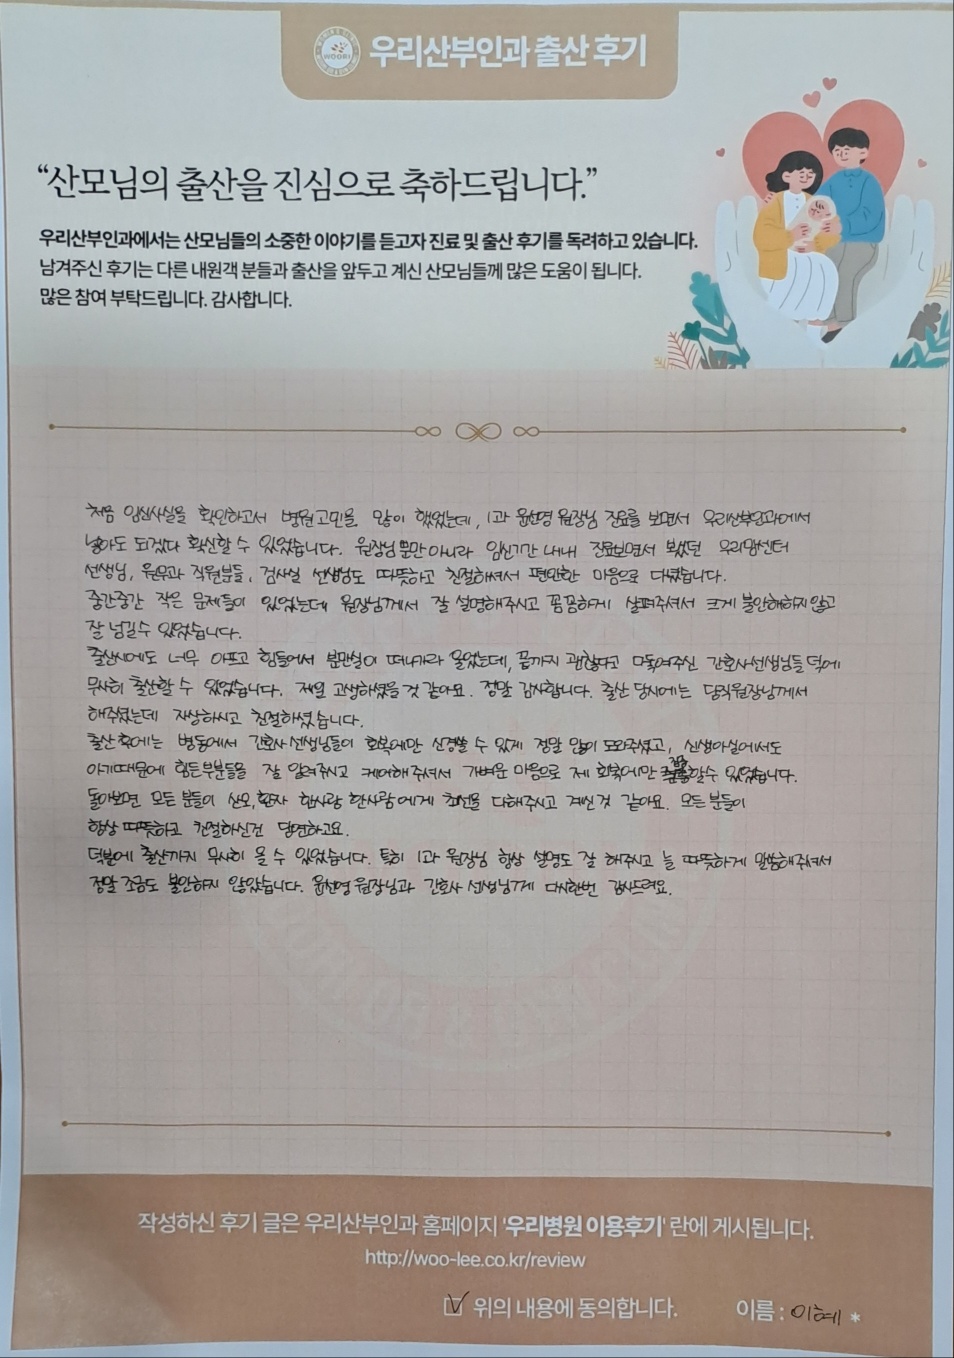 WOORI
우리산부인과 출산 후기
“산모님의 출산을 진심으로 축하드립니다.”
우리산부인과에서는 산모님들의 소중한 이야기를 듣고자 진료 및 출산 후기를 독려하고 있습니다.
남겨주신 후기는 다른 내원객 분들과 출산을 앞두고 계신 산모님들께 많은 도움이 됩니다.
많은 참여 부탁드립니다. 감사합니다.
처음 임신사실을 확인하고서 병원고민을 많이 했었는데, 1과 윤선영 원장님 진료를 보면서 우리산부인과에서
낳아도 되겠다 확신할 수 있었습니다. 원장님뿐만 아니라 임신기간 내내 진료보면서 뵀었던 우리맘센터
선생님, 원무과 직원분들, 검사실 선생님도 따뜻하고 친절하셔서 편안한 마음으로 다녔습니다.
중간중간 작은 문제들이 있었는데 원장님께서 잘 설명해주시고 꼼꼼하게 살펴주셔서 크게 불안해하지않고
잘 넘길수 있었습니다.
출산시에도 너무 아프고 힘들어서 분만실이 떠나가라 울었는데, 끝까지 괜찮다고 다독여주신 간호사선생님들 덕에
무사히 출산할 수 있었습니다. 제일 고생하셨을것 같아요. 정말 감사합니다. 출산 당시에는 당직원장님께서
해주셨는데 자상하시고 친절하셨습니다.
출산 후에는 병동에서 간호사 선생님들이 회복에만 신경쓸 수 있게 정말 많이 도와주셨고, 신생아실에서도
아기때문에 힘든부분들을 잘 알려주시고 케어해주셔서 가벼운 마음으로 제 회복에만 집중할수 있었습니다.
돌아보면 모든 분들이 산모,환자 한사람 한사람에게 최선을 다해주시고 계신것 같아요. 모든분들이
항상 따뜻하고 친절하신건 당연하고요.
덕분에 출산까지 무사히 올 수 있었습니다. 특히 1과 원장님 항상 설명도 잘 해주시고 늘 따뜻하게 말씀해주셔서
정말 조금도 불안하지 않았습니다. 윤선영 원장님과 간호사 선생님께 다시한번 감사드려요.
작성하신 후기 글은 우리산부인과 홈페이지 '우리병원 이용후기' 란에 게시됩니다.
http://woo-lee.co.kr/review
위의 내용에 동의합니다. 이름 : 이혜 *